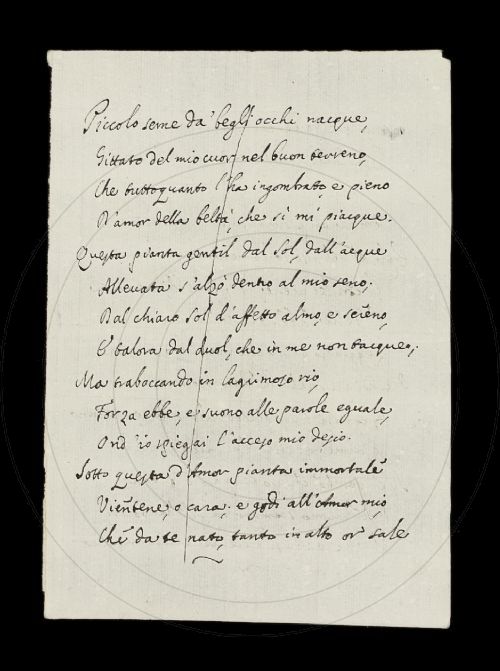 Piccolo seme da' begli occhi nacque,
Gittato del mio cuor nel buon terreno,
Che tuttoquanto l'ha ingombrato, e pieno
D'amor della beltà, che sì mi piacque.
Questa pianta gentil dal Sol, dall'acque
Allevata s'alzò dentro al mio seno;
Dal chiaro Sol d'affetto almo, e sereno,
E talora dal duol, che in me non tacque;
Ma traboccando in lagrimoso rio,
Forza ebbe, e suono alle parole eguale,
Ond'io spiegai l'acceso mio desio.
Sotto questa d'Amor pianta immortale
Vientene, o cara; e godi all'Amor mio,
Che da te nato, tanto in alto or sale